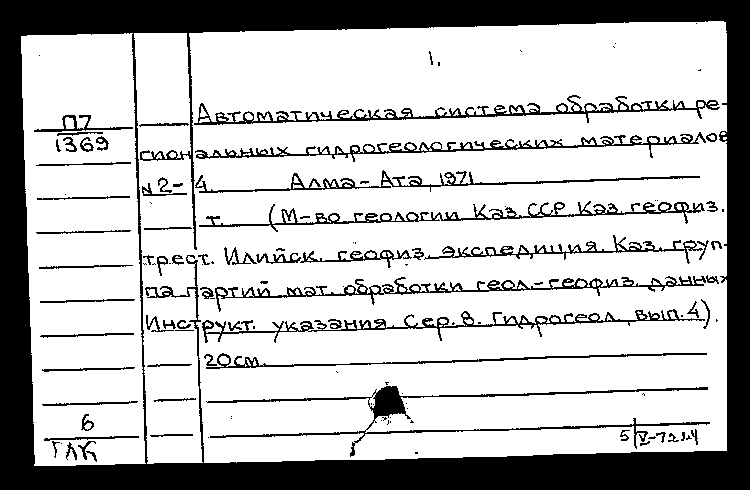 1.
П7
1369
Автоматическая система обработки ре-
гиональных гидрогеологических материалов
N2-4. Алма-Ата, 1971.
т. (М-во геологии Каз.ССР. Каз. геофиз.
трест. Илийск. геофиз. экспедиция. Каз. груп-
па партий мат. обработки геол.-геофиз. данных.
Инструкт. указания. Сер. 8. Гидрогеол., вып. 4).
20см.
6
ГЛК